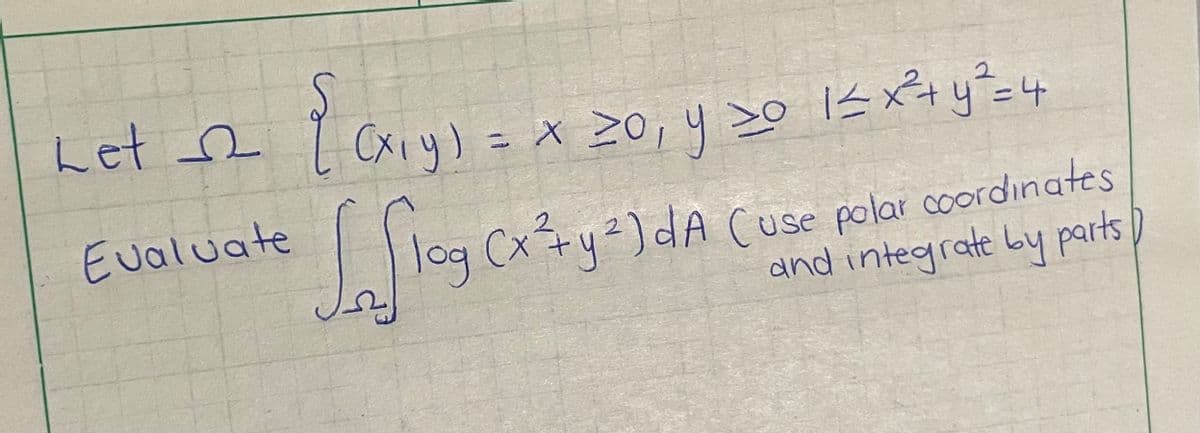 Let Ω { (x,y) = x ≥0, y ≥0 1≤ x²+ y²=4
Evaluate ∫∫Ω log (x²+y²)dA (use polar coordinates
and integrate by parts)